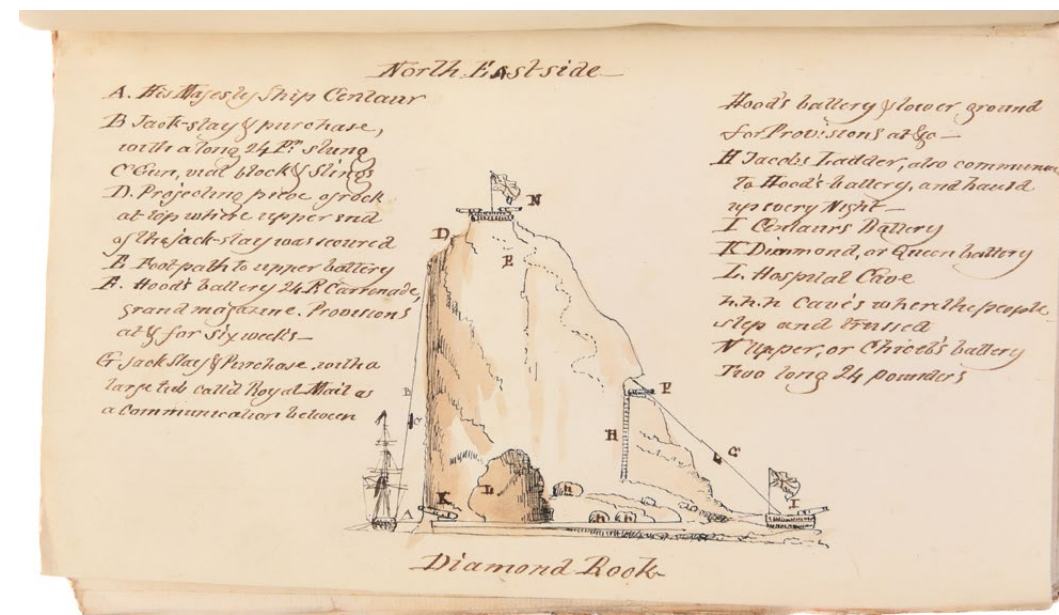 North East side
A. His Majesty Ship Centaur
B Jack-stay & purchase,
with a long 24 Pr. slung
C Gun, viol block & Slings
D. Projecting piece of rock
at top where upper end
of the jack-stay was secured
E Foot path to upper battery
F. Hood's battery 24 P. Carronade,
grand magazine. Provisions
at & for six weeks—
G. Jack Stay & Purchase, with a
large tub call'd Royal Mail as
a communication between
Hood's battery & lower ground
for Provisions at &c—
H Jacobs Ladder, also commun
to Hood's battery, and hauld
up every Night—
I Centaurs Battery
K Diamond, or Queen battery
L. Hospital Cave
h.h.h Cave's where the people
slep and
N Upper, or Battery
Two long 24 pounders
N
D
E
B
C
F
H
G
L
h
I
K
A
h
h
Diamond Rock